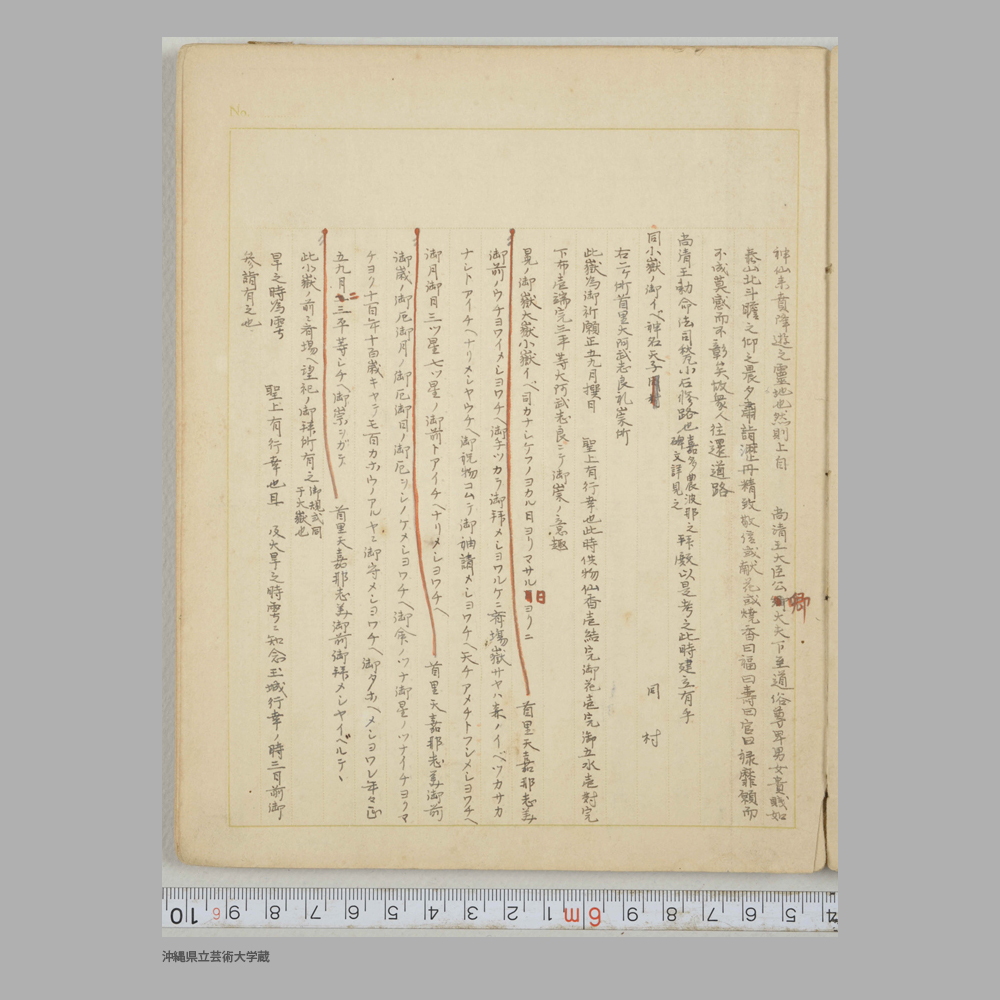 No.
神仙来賁降遊之靈地也然則上自　尚清王大臣公卿大夫下至道俗尊卑男女貴賤如
泰山北斗瞻之仰之晨夕肅詣瀝丹精致敬僾或献花或焼香曰福曰寿曰官曰禄靡願而
不成莫感而不彰矣故衆人往還道路
尚清王勅命法司築小石修路也嘉多農波那之拜殿以是考之此時建立有乎
碑文詳見之
同小嶽ノ御イベ神名天子　同村
右二ヶ所首里大阿武志良礼崇所
此嶽為御祈願正五九月撰日　聖上有行幸也此時供物仙香壱結完御花壱完御五水壱対完
下布壱端完三平等大阿武志良ニテ御崇ノ意趣
晃ノ御嶽大嶽小嶽イベ司カナシケフノヨカル日ヨリマサル日ヨリニ　首里天嘉那志美
御前ノウチヨワイメシヨワチヘ御手ツカラ御拜メシヨワルケニ斎場嶽サヤハ嶽ノイベツカサカ
ナシトアイチヘナリメシヤウチヘ御祝物コムテ御袖請メシヨワチヘ天チアメチトフシメシヨワチヘ
御月御日三ツ星七ツ星ノ御前トアイチヘナリメシヨワチヘ　首里天嘉那志美御前
御歳ノ御厄御月ノ御厄御日ノ御厄ソシノケメシヨワチヘ御命ノツナ御星ノツナイチヨクマ
チヨク十百年十百歳キヤテモ百カホウノアルヤニ御守メシヨワチヘ御タホヘメシヨワレ年々正
五九月ニ三平等シチヘ御崇シガテス　首里天嘉那志美御前御拜メシヤイベルテヽ
此小嶽ノ前ニ斎場ヘ望祀ノ御拜所有之御規式同
于大嶽也
旱之時為雩　聖上有行幸也且　及大旱之時雩ニ知念玉城行幸ノ時三日前御
参詣有之也
10 9 8 7 6 5 4 3 2 1 6m 9 8 7 6 5 4
沖縄県立芸術大学蔵